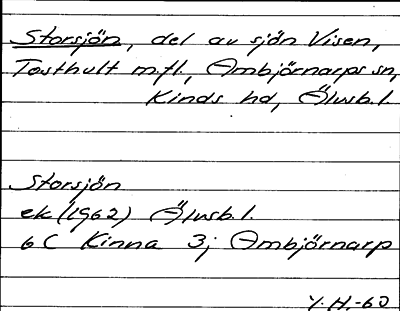 Storsjön, del av sjön Visen,
Tosthult m.fl., Ambjörnarps sn,
Kinds hd, Älvsb.l.
Storsjön
ek (1962) Älvsb.l.
6C Kinna 3j Ambjörnarp
Y.H.-60